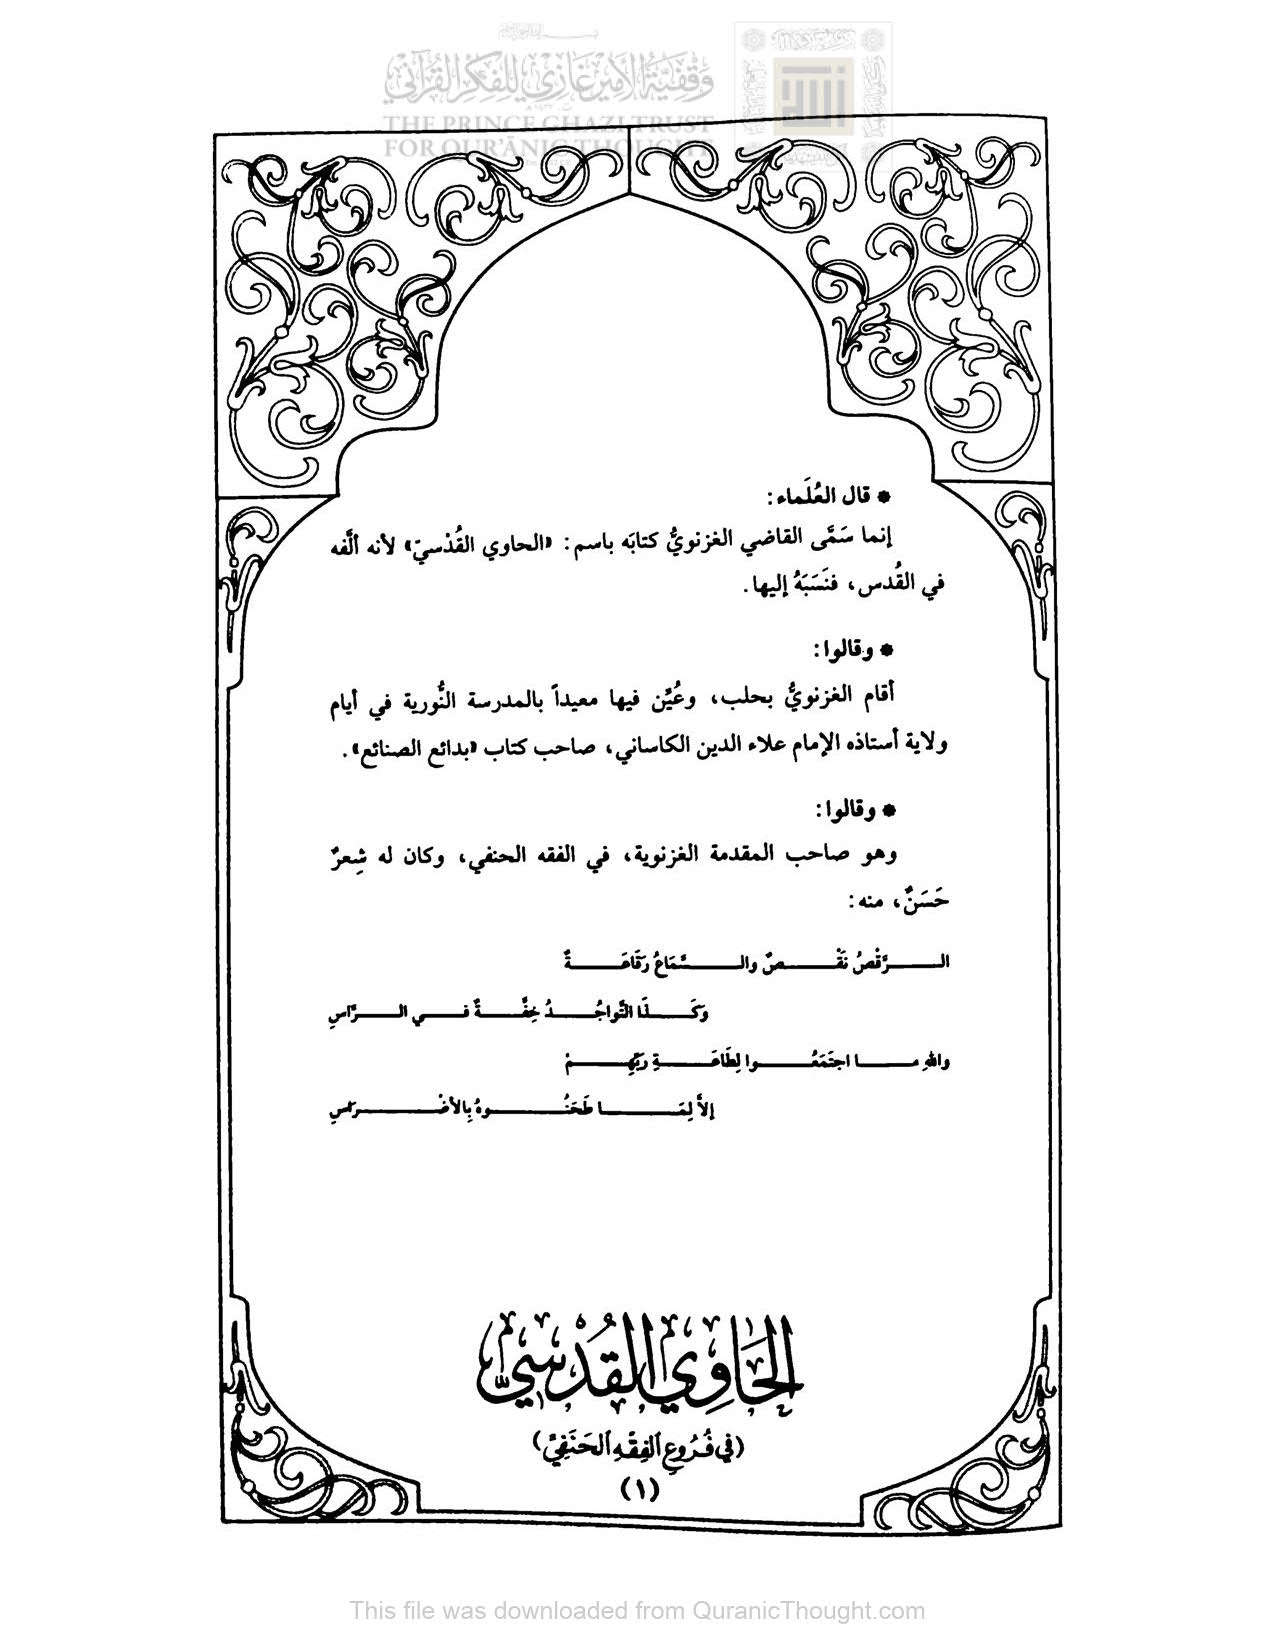 وَقْفِيَّةُ الأَمِيرِ غَازِي لِلْفِكْرِ القُرْآنِيِّ
THE PRINCE GHAZI TRUST
FOR QUR'ĀNIC THOUGHT
* قال العُلَماء:
إنما سَمَّى القاضي الغزنويُّ كتابَه باسم: «الحاوي القُدْسيّ» لأنه ألَّفه
في القُدس، فنَسَبَهُ إليها.
* وقالوا:
أقام الغزنويُّ بحلب، وعُيِّن فيها معيداً بالمدرسة النُّورية في أيام
ولاية أستاذه الإمام علاء الدين الكاساني، صاحب كتاب «بدائع الصنائع».
* وقالوا:
وهو صاحب المقدمة الغزنوية، في الفقه الحنفي، وكان له شِعرٌ
حَسَنٌ، منه:
الرَّقْصُ نَقْصٌ والسَّمَاعُ رَقَاعَةٌ
وَكَذَا التَّواجُدُ خِفَّةٌ في الرَّاسِ
واللهِ ما اجتَمَعُوا لِطَاعَةِ رَبِّهِمْ
إلاَّ لِمَا طَحَنُوهُ بِالأضْرَاسِ
الحَاوِي القُدْسِيّ
(في فُرُوعِ الفِقْهِ الحَنَفِيّ)
(١)
This file was downloaded from QuranicThought.com